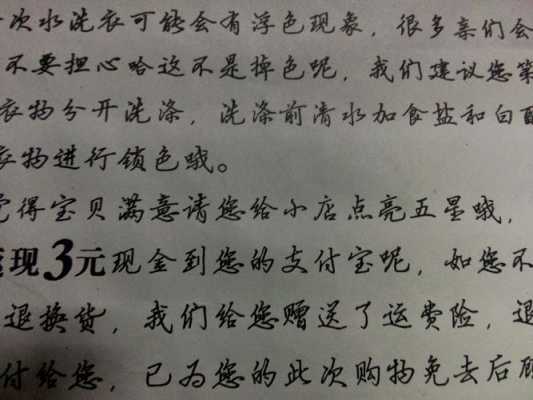 次水洗衣可能会有浮色现象，很多亲们会
不要担心哈这不是掉色呢，我们建议您第
衣物分开洗涤，洗涤前清水加食盐和白醋
衣物进行锁色哦。
觉得宝贝满意请您给小店点亮五星哦，
返现3元现金到您的支付宝呢，如您不
退换货，我们给您赠送了运费险，退
付给您，已为您的此次购物免去后顾